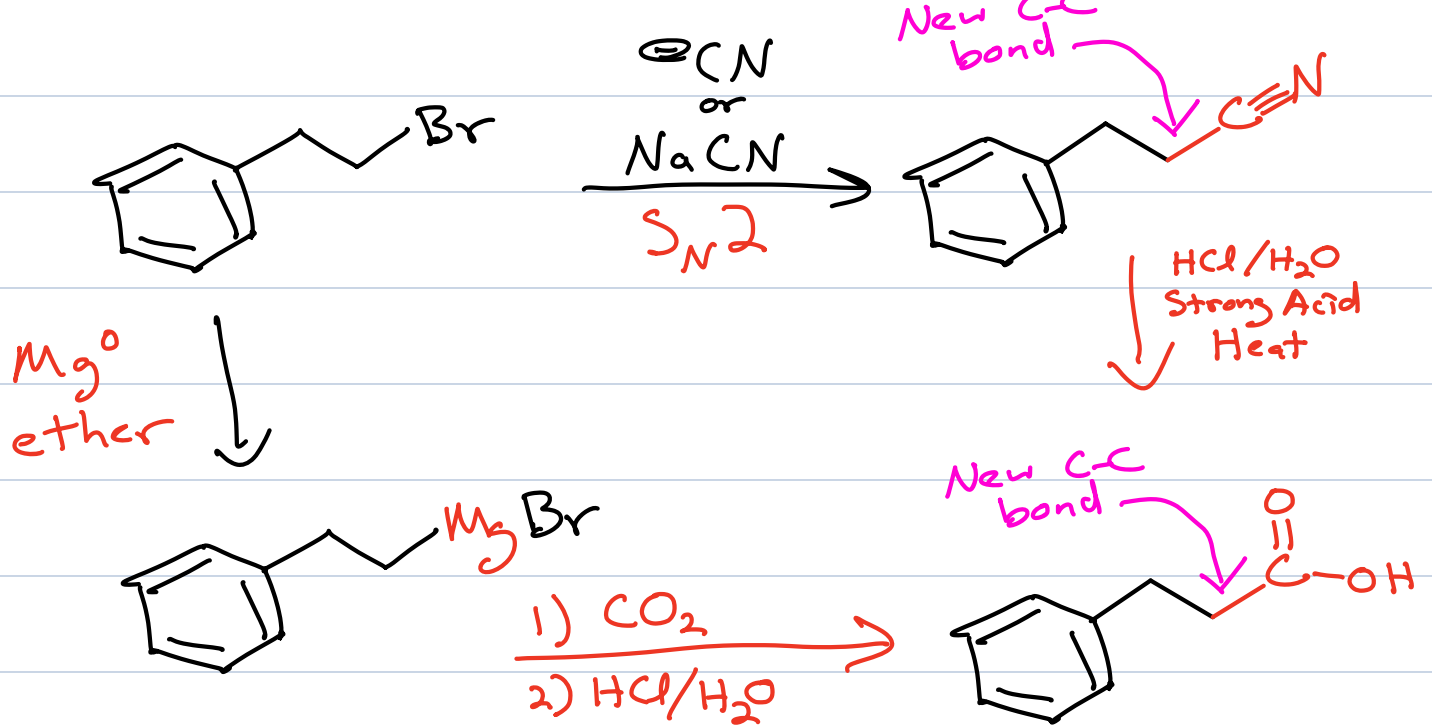 New C-C
bond
⊖CN
or
NaCN
SN2
Br
C≡N
HCl/H2O
Strong Acid
Heat
Mg0
ether
MgBr
1) CO2
2) HCl/H2O
New C-C
bond
O
C-OH